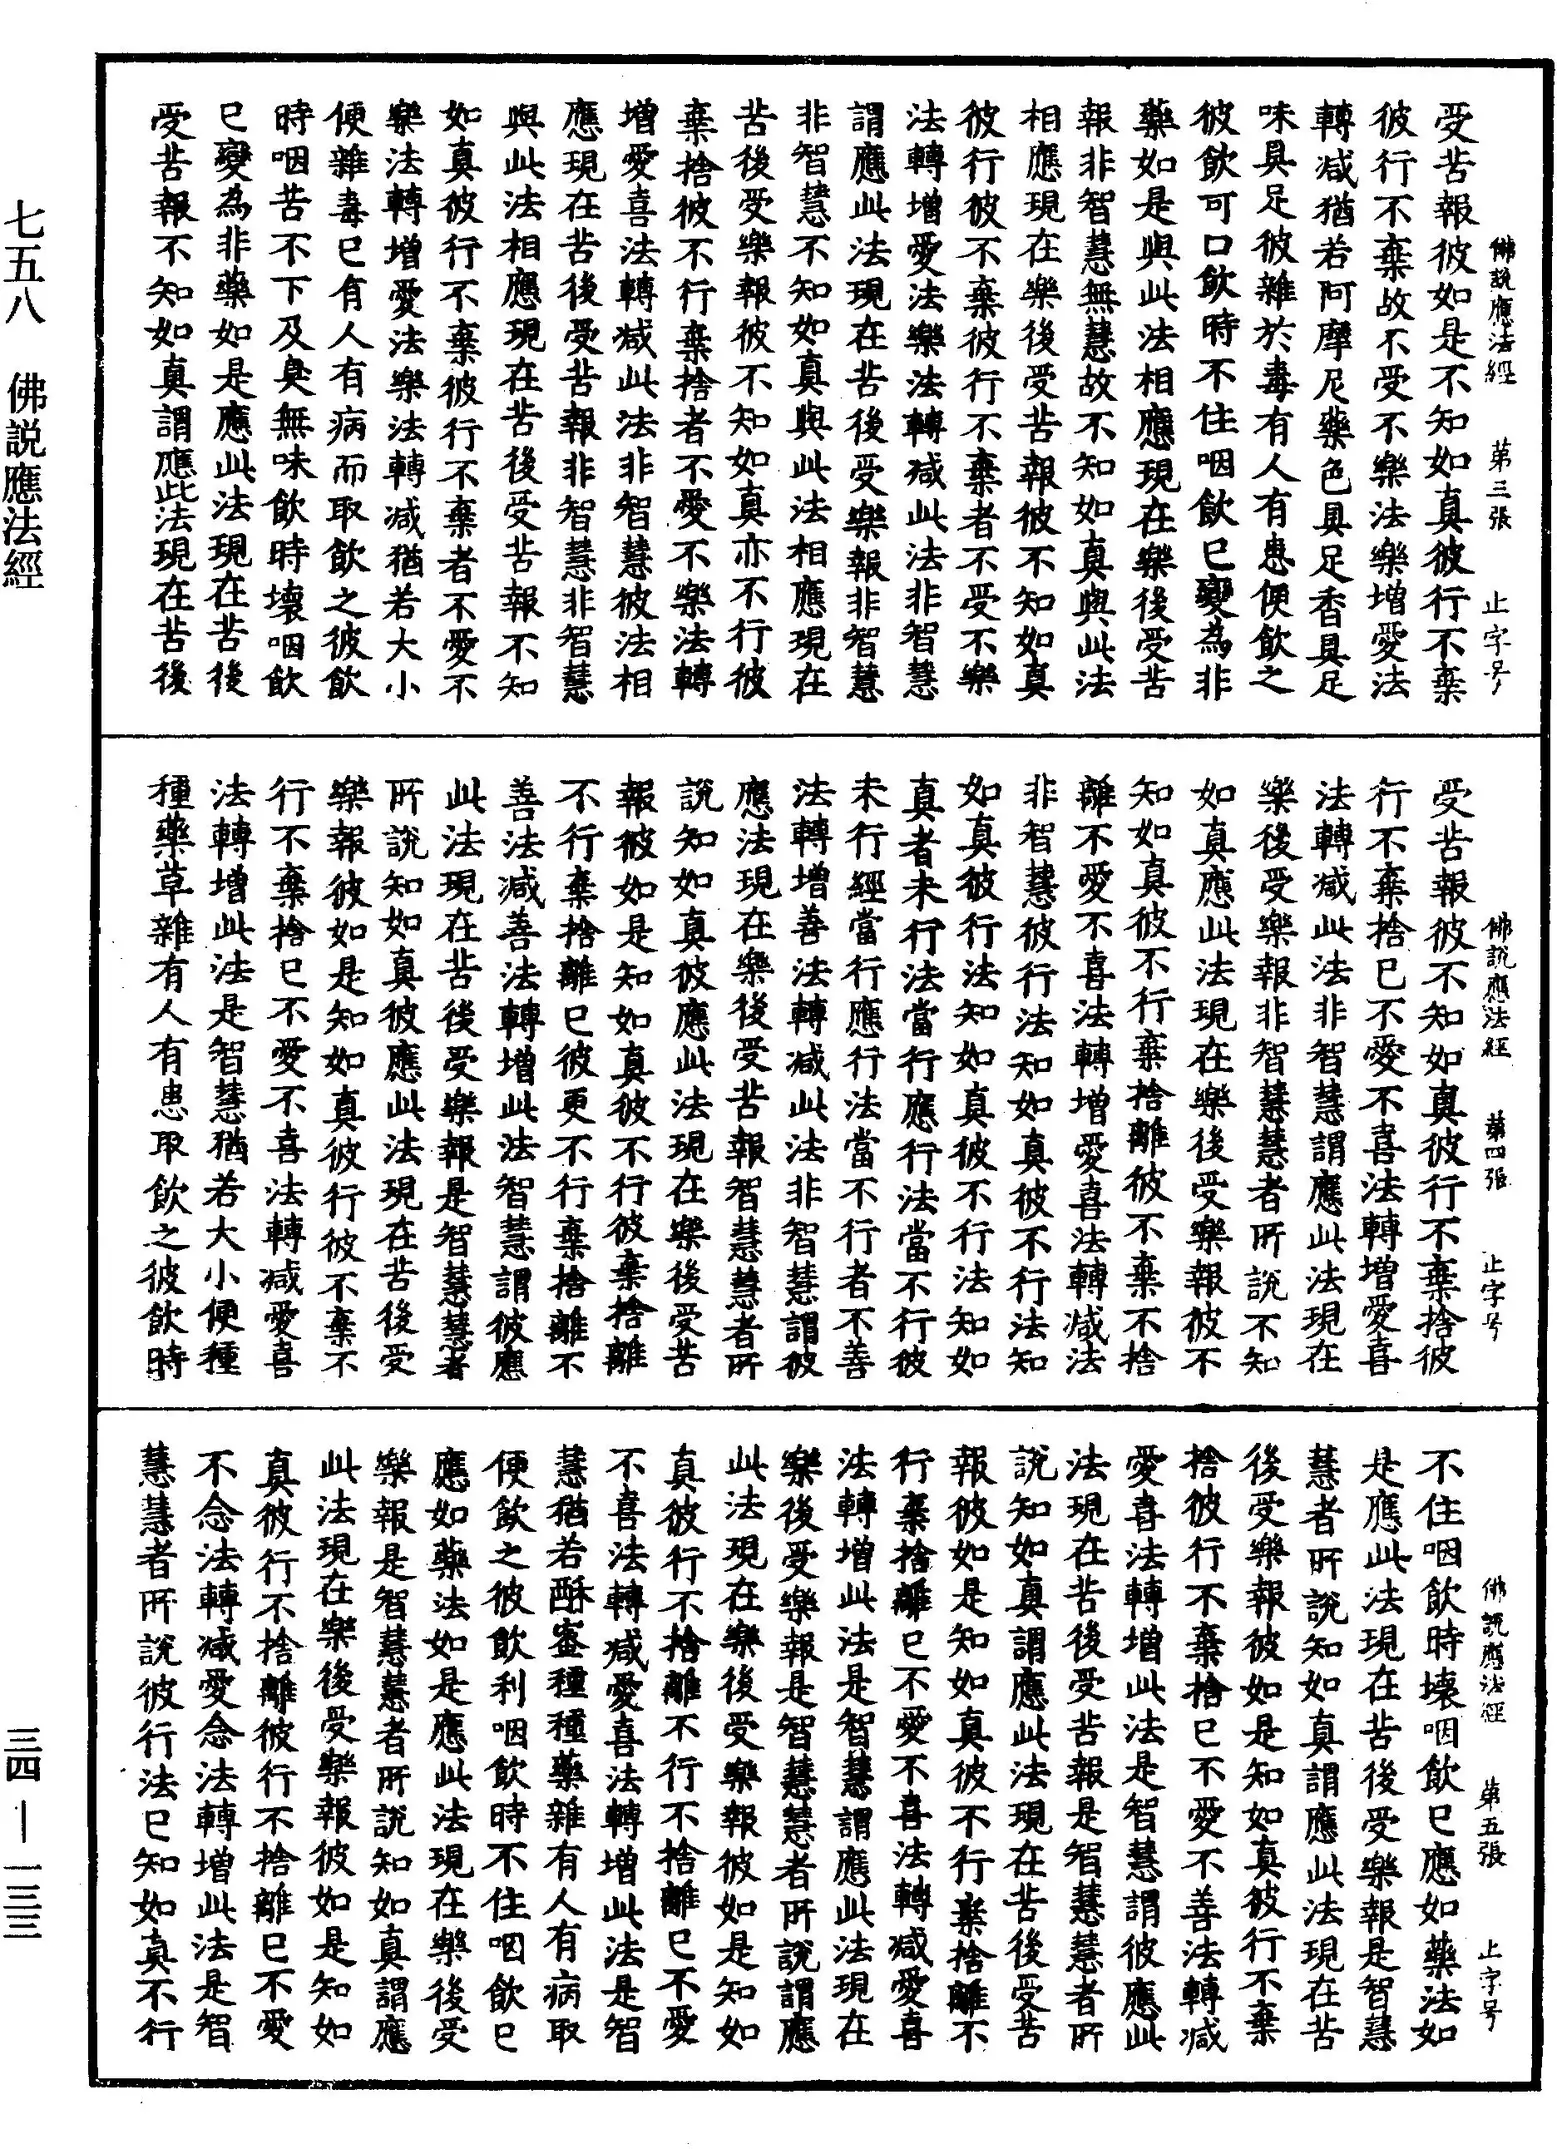 佛說應法經　第三張　止字号
受苦報彼如是不知如真彼行不棄
彼行不棄故不受不樂法樂增愛法
轉减猶若阿摩尼藥色具足香具足
味具足彼雜於毒有人有患便飲之
彼飲可口飲時不住咽飲已變為非
藥如是與此法相應現在樂後受苦
報非智慧無慧故不知如真與此法
相應現在樂後受苦報彼不知如真
彼行彼不棄彼行不棄者不受不樂
法轉增愛法樂法轉减此法非智慧
謂應此法現在苦後受樂報非智慧
非智慧不知如真與此法相應現在
苦後受樂報彼不知如真亦不行彼
棄捨彼不行棄捨者不愛不樂法轉
增愛喜法轉减此法非智慧彼法相
應現在苦後受苦報非智慧非智慧
與此法相應現在苦後受苦報不知
如真彼行不棄彼行不棄者不愛不
樂法轉增愛法樂法轉减猶若大小
便雜毒已有人有病而取飲之彼飲
時咽苦不下及臭無味飲時壞咽飲
已變為非藥如是應此法現在苦後
受苦報不知如真謂應此法現在苦後
佛說應法經　第四張　止字号
受苦報彼不知如真彼行不棄捨彼
行不棄捨已不愛不喜法轉增愛喜
法轉减此法非智慧謂應此法現在
樂後受樂報非智慧慧者所說不知
如真應此法現在樂後受樂報彼不
知如真彼不行棄捨離彼不棄不捨
離不愛不喜法轉增愛喜法轉减法
非智慧彼行法知如真彼不行法知
如真彼行法知如真彼不行法知如
真者未行法當行應行法當不行彼
未行經當行應行法當不行者不善
法轉增善法轉减此法非智慧謂彼
應法現在樂後受苦報智慧慧者所
說知如真彼應此法現在樂後受苦
報彼如是知如真彼不行彼棄捨離
不行棄捨離已彼更不行棄捨離不
善法减善法轉增此法智慧謂彼應
此法現在苦後受樂報是智慧慧者
所說知如真彼應此法現在苦後受
樂報彼如是知如真彼行彼不棄不
行不棄捨已不愛不喜法轉减愛喜
法轉增此法是智慧猶若大小便種
種藥草雜有人有患取飲之彼飲時
佛說應法經　第五張　止字号
不住咽飲時壞咽飲已應如藥法如
是應此法現在苦後受樂報是智慧
慧者所說知如真謂應此法現在苦
後受樂報彼如是知如真彼行不棄
捨彼行不棄捨已不愛不善法轉减
愛喜法轉增此法是智慧謂彼應此
法現在苦後受苦報是智慧慧者所
說知如真謂應此法現在苦後受苦
報彼如是知如真彼不行棄捨離不
行棄捨離已不愛不喜法轉减愛喜
法轉增此法是智慧謂應此法現在
樂後受樂報是智慧慧者所說謂應
此法現在樂後受樂報彼如是知如
真彼行不捨離不行不捨離已不愛
不喜法轉减愛喜法轉增此法是智
慧猶若酥蜜種種藥雜有人有病取
便飲之彼飲利咽飲時不住咽飲已
應如藥法如是應此法現在樂後受
樂報是智慧慧者所說知如真謂應
此法現在樂後受樂報彼如是知如
真彼行不捨離彼行不捨離已不愛
不念法轉减愛念法轉增此法是智
慧慧者所說彼行法已知如真不行
七五八　佛説應法經
三四—一三三